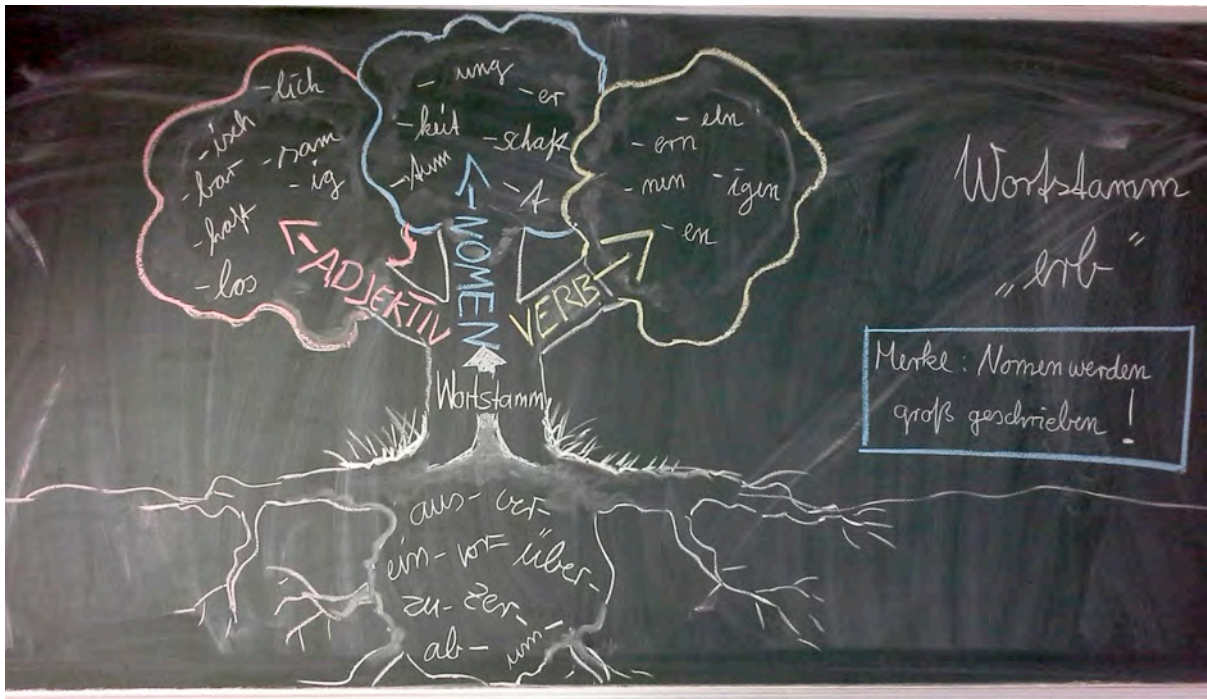 -lich
-isch
-bar -sam
-ig
-haft
-los
ADJEKTIV
-ung
-er
-keit
-schaft
-tum
-t
NOMEN
-eln
-ern
-nen -igen
-en
VERB
Wortstamm
aus- ver-
ein- vor- über-
zu- zer-
ab- um-
Wortstamm
„erb“
Merke: Nomen werden
groß geschrieben!